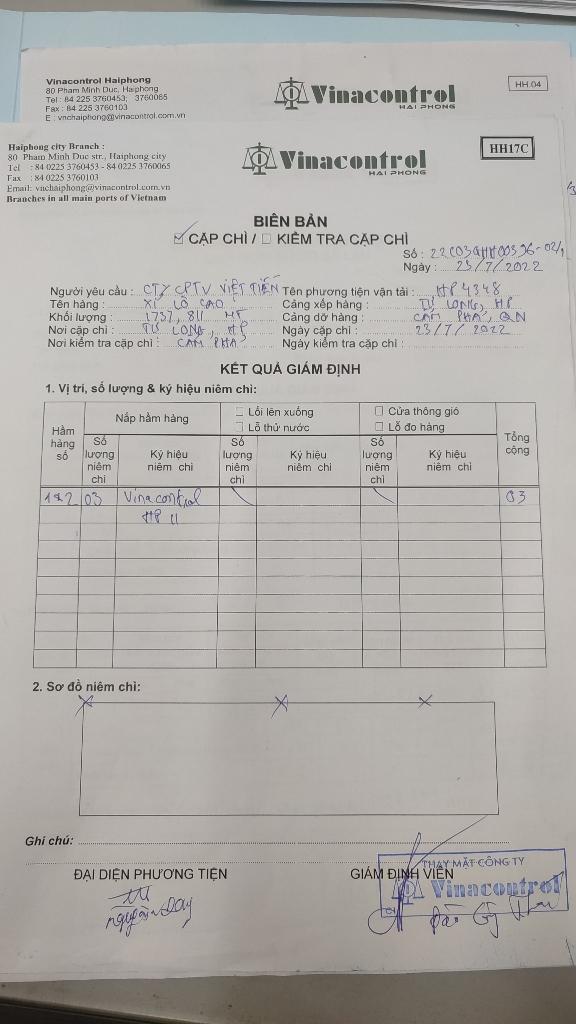 Vinacontrol Haiphong
80 Pham Minh Duc, Haiphong
Tel : 84 225 3760453; 3760065
Fax : 84 225 3760103
E : vnchaiphong@vinacontrol.com.vn
Vinacontrol
HAI PHONG
HH.04
Haiphong city Branch :
80 Pham Minh Duc str., Haiphong city
Tel : 84 0225 3760453 - 84 0225 3760065
Fax : 84 0225 3760103
Email: vnchaiphong@vinacontrol.com.vn
Branches in all main ports of Vietnam
Vinacontrol
HAI PHONG
HH17C
BIÊN BẢN
CẶP CHÌ / KIỂM TRA CẶP CHÌ
Số : 22C03QHH00396-02/1
Ngày : 23/7/2022
Người yêu cầu : CTY CPTV VIỆT TIẾN Tên phương tiện vận tải : HP 4348
Tên hàng : XỈ LÒ CAO Cảng xếp hàng : TỰ LONG, HP
Khối lượng : 1737,811 MT Cảng dỡ hàng : CẨM PHẢ, QN
Nơi cặp chì : TỰ LONG, HP Ngày cặp chì : 23/7/2022
Nơi kiểm tra cặp chì : CẨM PHẢ Ngày kiểm tra cặp chì :
KẾT QUẢ GIÁM ĐỊNH
1. Vị trí, số lượng & ký hiệu niêm chì:
Hầm hàng số
Nắp hầm hàng
Lối lên xuống
Lỗ thử nước
Cửa thông gió
Lỗ đo hàng
Tổng cộng
Số lượng niêm chì
Ký hiệu niêm chì
Số lượng niêm chì
Ký hiệu niêm chì
Số lượng niêm chì
Ký hiệu niêm chì
1&2 03 Vinacontrol 03
HP 11
2. Sơ đồ niêm chì:
Ghi chú:
ĐẠI DIỆN PHƯƠNG TIỆN GIÁM ĐỊNH VIÊN
THAY MẶT CÔNG TY
Vinacontrol